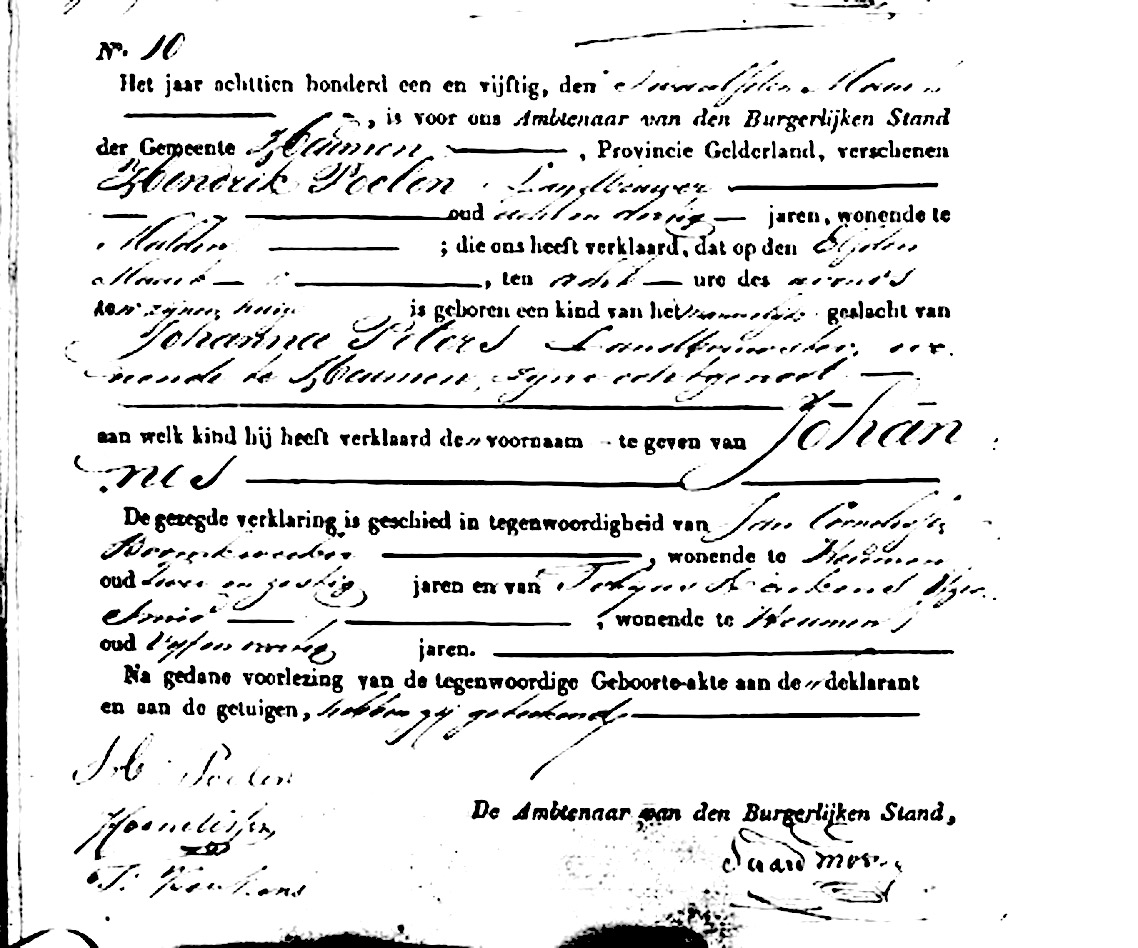 N°. 10
Het jaar achttien honderd een en vijftig, den Twaalfden Maart
, is voor ons Ambtenaar van den Burgerlijken Stand
der Gemeente Heumen , Provincie Gelderland, verschenen
Hendrik Poelen Landbouwer
oud acht en dertig jaren, wonende te
Malden ; die ons heeft verklaard, dat op den Elfden
Maart , ten acht ure des avonds
ten zijnen huize is geboren een kind van het mannelijk geslacht van
Johanna Peters Landbouwster, wo
nende te Heumen, zyne echtgenoot
aan welk kind hij heeft verklaard den voornaam te geven van Johan
nes
De gezegde verklaring is geschied in tegenwoordigheid van Jan Cornelissen
, wonende te Heumen
oud twee en zestig jaren en van
Smid , wonende te Heumen
oud Vyf en jaren.
Na gedane voorlezing van de tegenwoordige Geboorte-akte aan den deklarant
en aan de getuigen, hebben zij geteekend
H Poelen
De Ambtenaar van den Burgerlijken Stand,